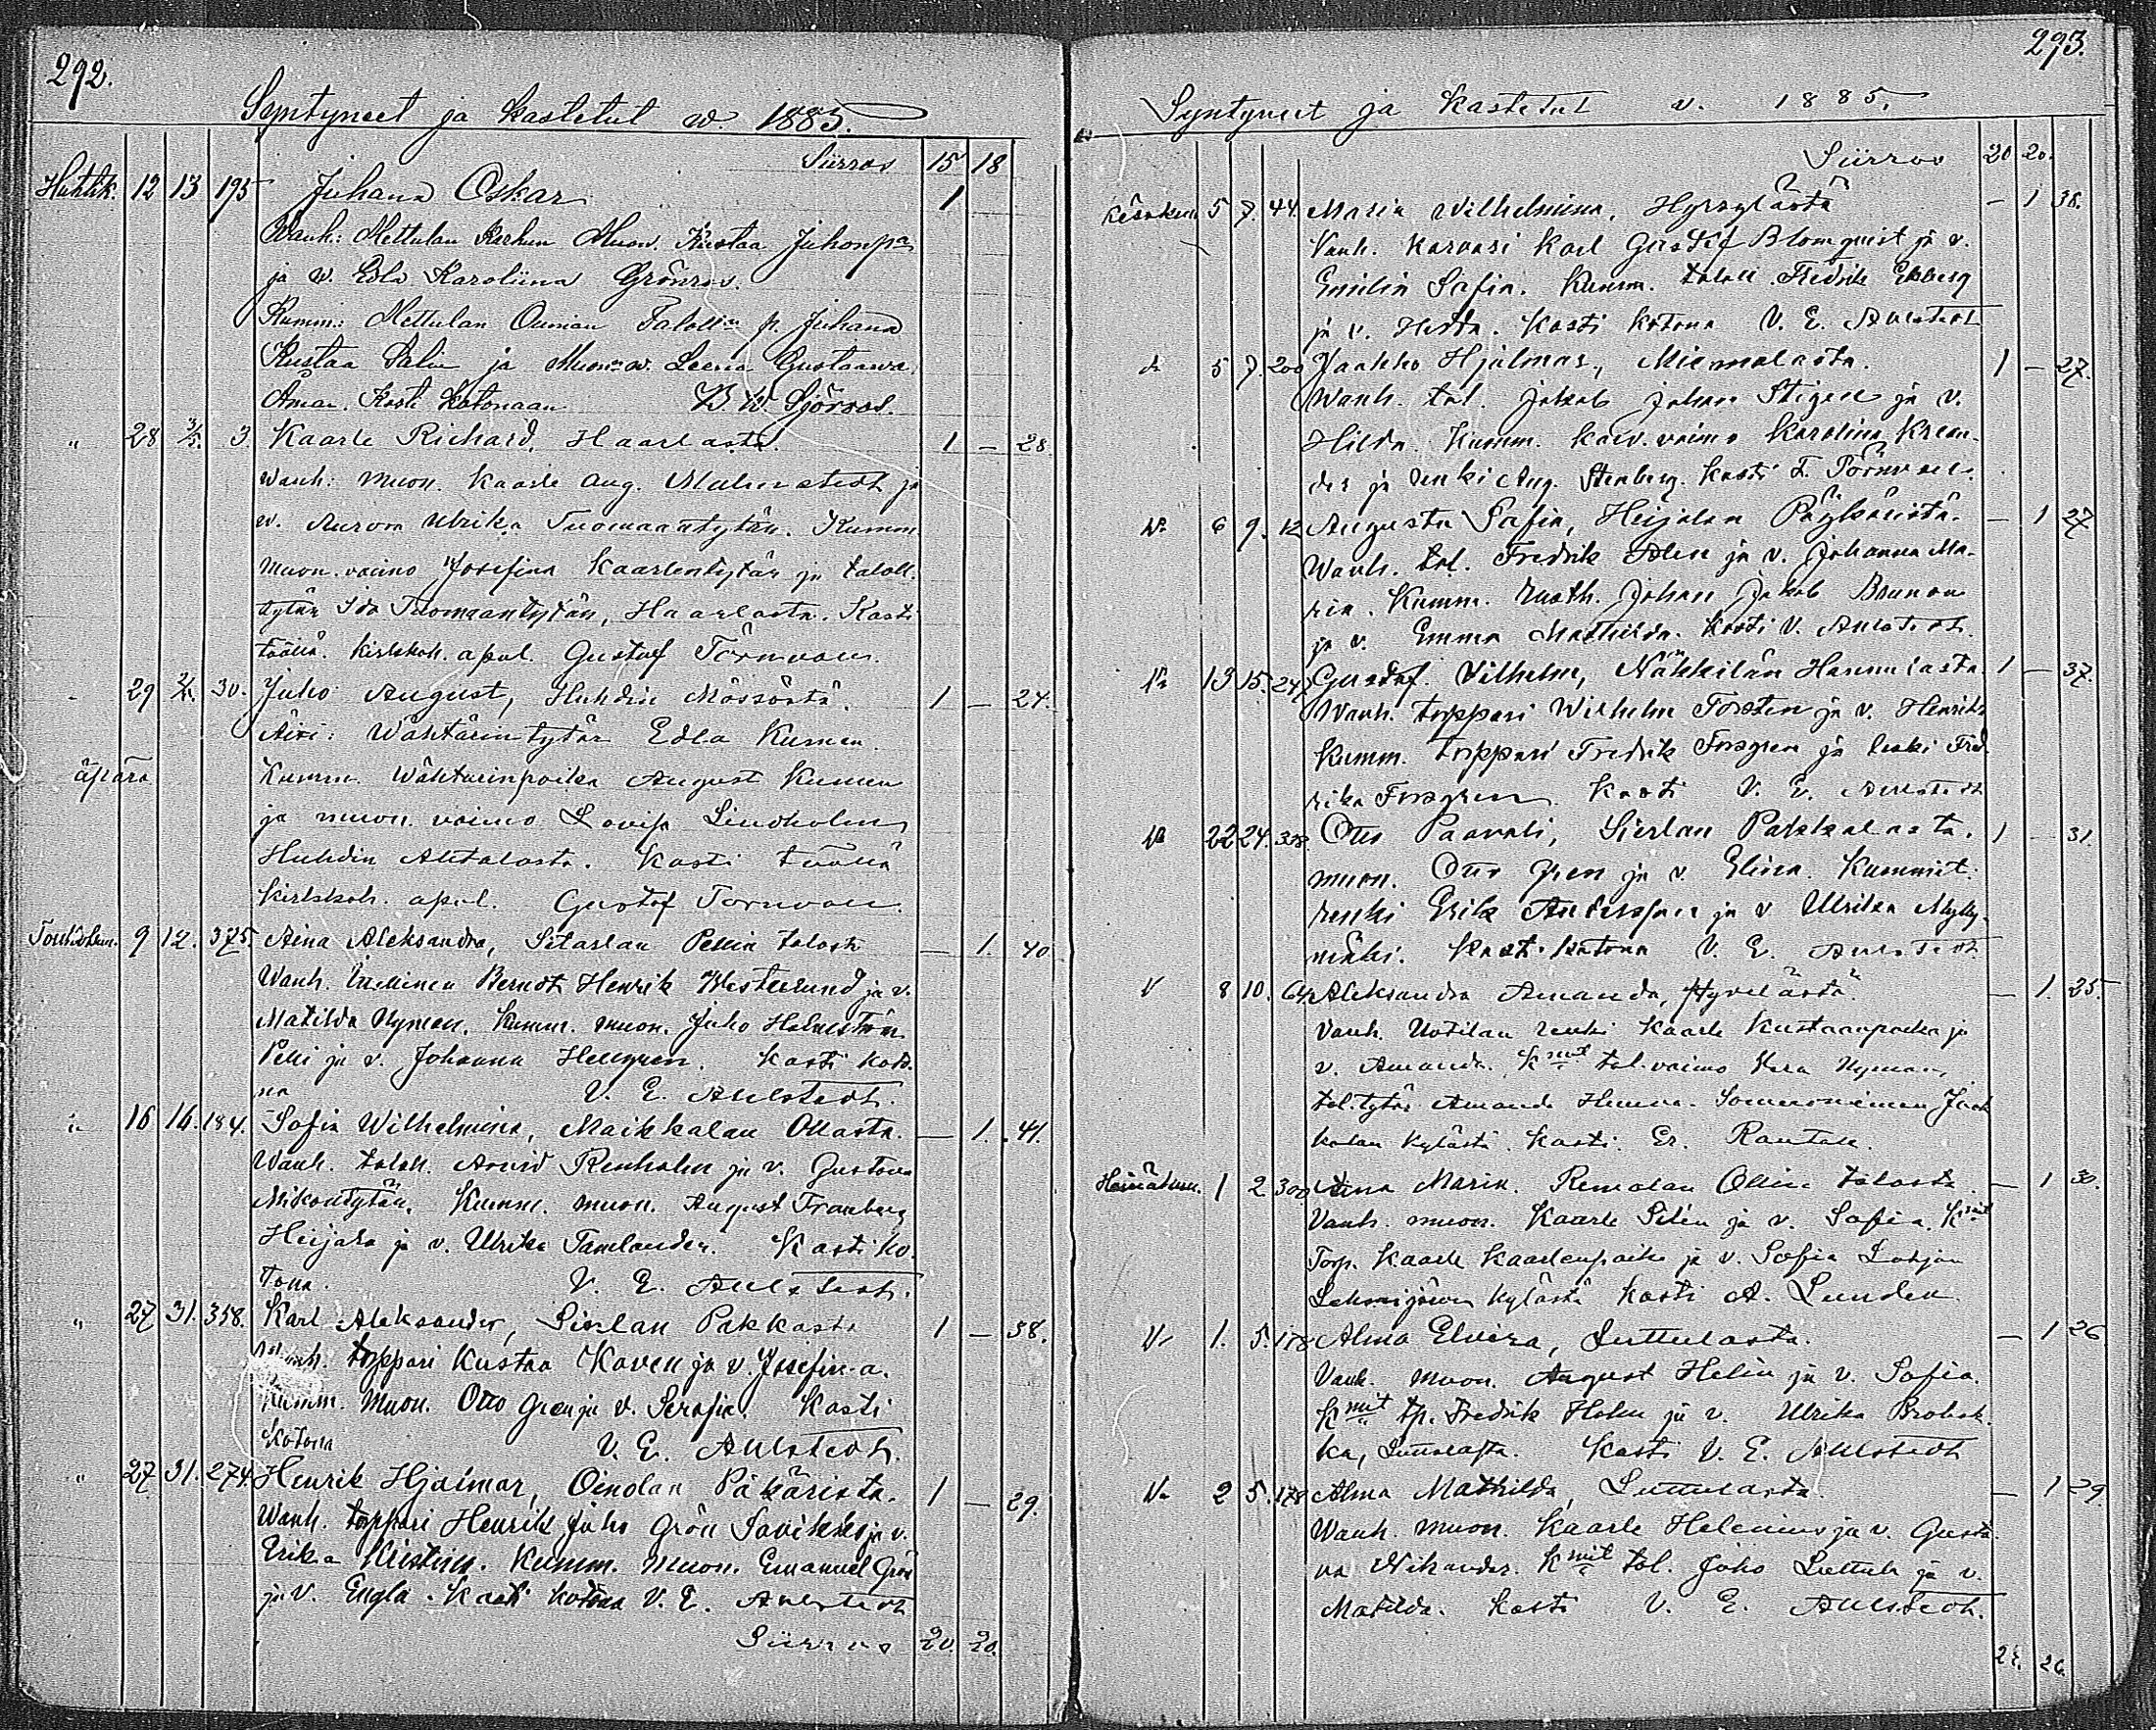 292.
Syntyneet ja kastetut w. 1885.
Siirros 15 18
Huhtik. 12 13 195 Juhana Oskar 1
Wanh: Mettulan Karhun Muon. Kustaa Juhonp.
ja w. Edla Karoliina Grönros.
Kumm: Mettulan Talol. p. Juhana
Kustaa Salin ja Muon. w. Leena Gustaawa
Kasti kotonaan K. W. Sjöroos.
" 28 3/5. 3. Kaarle Richard, Haarlasta. 1 — 28
Wanh: muon. Kaarle Aug. Malmstedt ja
w. Aurora Ulrika Tuomaantytär. Kumm.
muon. vaimo Josefina Kaarlentytär ja taloll.
tytär Ida Tuomaantytär, Haarlasta. Kasti
täällä. Kirkkoh. apul. Gustaf Törnvall.
" 29 30. Juho August, Huhdin Mässöstä. 1 — 24.
Äiti: Wahtärintytär Edla Kumen.
äpärä Kumm. Wahtarinpoika August Kumen
ja muon. vaimo Lovisa Lindholm
Huhdin Ahtalosta. Kasti täällä
Kirkkoh. apul. Gustaf Törnvall.
Toukokuu. 9 12. 375. Aina Aleksandra, Sitarlan Pellin talosta — 1. 40
Wanh. Itsellinen Berndt Henrik Westerlund ja v.
Matilda Nyman. Kumm. muon. Juho Holmström
Pelli ja v. Johanna Hellgren. Kasti koto-
na V. E. Ahlstedt.
" 16 16. 184. Sofia Wilhelmina, Maikkalan Ollasta. — 1. 41.
Wanh. taloll. Arvid Renholm ja v. Gustava
Mikontytär. Kumm. muon. August Franberg
Heijala ja v. Ulrika Tamlander. Kasti ko-
tona. V. E. Ahlstedt.
" 27 31. 358. Karl Aleksander, Sierlan Pakkasta 1 — 38.
Wanh. torppari Kustaa Koven ja v. Josefina.
Kumm. Muon. Otto Gren ja v. Serafia. Kasti
kotona V. E. Ahlstedt.
" 27 31. 274. Henrik Hjalmar, Oinolan Päkäristä. 1 — 29.
Wanh. torppari Henrik Juho Grön Savikko ja v.
Erika Kristina. Kumm. Muon. Emanuel Grön
ja v. Engla. Kasti kotona V. E. Ahlstedt
Siirros 20. 20.
293.
Syntyneet ja kastetut v. 1885.
Siirros 20 20.
Kesäkuu 5 7. 44. Maria Wilhelmina, Hyrsylästä — 1 38.
Vanh. Karvari Karl Gustaf Blomquist ja v.
Emilia Sofia. Kumm. taloll. Fredrik Ekberg
ja v. Hedda. Kasti kotona V. E. Ahlstedt
5 7. 200 Jaakko Hjalmar, Miemolasta. 1 — 27.
Wanh. tal. Jakob Johan Stigell ja v.
Hilda. Kumm. karv. vaimo Karolina Krean-
der ja renki Aug. Stenberg. Kasti F. Törnvall.
6 9. 12 Augusta Sofia, Heijalan Päykäristä. — 1 27
Wanh. tal. Fredrik Alen ja v. Johanna Ma-
ria. Kumm. Johan Jakob Brunou
ja v. Emma Mathilda. Kasti V. Ahlstedt.
13 15. 24 Gustaf Vilhelm, Näkkilän Hannulasta. 1 — 37.
Wanh. torppari Wilhelm Forsten ja v. Henrika
Kumm. torppari Fredrik Forsgren ja leski Fred-
rika Forsgren. Kasti V. E. Ahlstedt
22 24. 358 Otto Paavali, Sierlan Pakkalasta. 1 — 31.
muon. Otto Gren ja v. Elisa. Kummit:
renki Erik Andersson ja v. Ulrika Mylly-
mäki. Kasti kotona V. E. Ahlstedt
8 10. 64 Aleksandra Amanda, Hyvelästä. — 1. 25.
Vanh. Uotilan renki Kaarle Kustaanpoika ja
v. Amanda. Kmit tal. vaimo Vera Nyman,
tal. tytär Amanda Someroniemen Jak
kolan kylästä. Kasti Er. Rautell.
Heinäkuu. 1 2 300 Anna Maria. Remalan Ollin talosta — 1 30.
Vanh. muon. Kaarle Silén ja v. Sofia. Kmit
Torp. Kaarle Kaarlenpoika ja v. Sofia Lohjan
Lehmijärven kylästä Kasti A. Lundén
1. 5. 178 Alma Elviira, Luttulasta. — 1 26
Vanh. muon. August Helin ja v. Sofia.
Kmit tp. Fredrik Holm ja v. Ulrika
Luttulasta. Kasti V. E. Ahlstedt
2 5. 178 Alma Mathilda, Luttulasta. — 1 29
Wanh. muon. Kaarle Helenius ja v. Gusta
va Nikander. Kmit tal. Juho Luttula ja v.
Matilda. Kasti V. E. Ahlstedt.
24. 26.